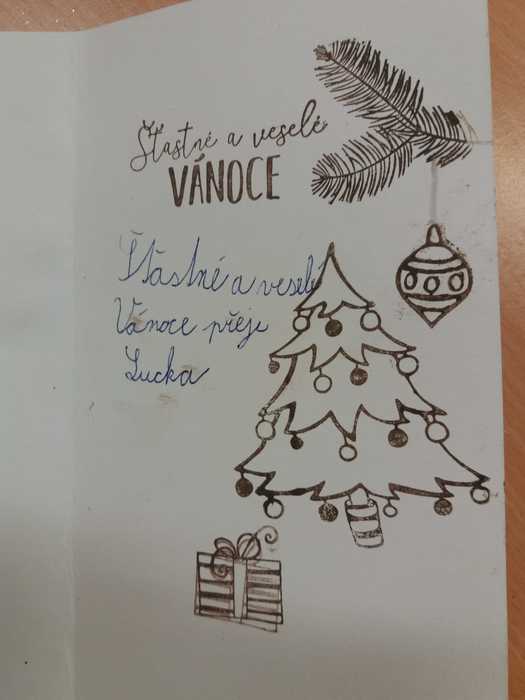 Šťastné a veselé
VÁNOCE
Šťastné a veselé
Vánoce přeje
Lucka